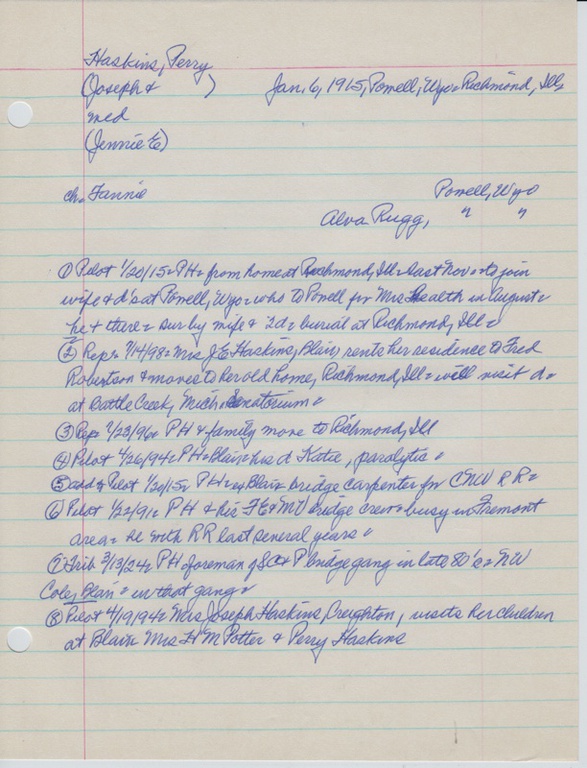 Haskins, Perry
(Joseph & ) Jan. 6, 1915, Powell, Wyo = Richmond, Ill,
med
(Jennie E)
ch. Fannie Powell, Wyo
Alva Rugg, " "
① Pilot 1/20/15 = PH = from home at Richmond, Ill = last Nov = to join
wife & d's at Powell, Wyo = who to Powell for Mrs health in August =
he + there = sur by wife & 2d = burial at Richmond, Ill =
② Rep = 7/14/98 = Mrs J E Haskins, Blair, rents her residence to Fred
Robertson & moves to her old home, Richmond, Ill = will visit d =
at Battle Creek, Mich =
③ Rep = 7/23/96 = PH & family move to Richmond, Ill
④ Pilot 4/26/94 = PH = Blair = his d Katie, paralytic =
⑤ add Pilot 1/20/15 = PH = Blair bridge carpenter for CNW RR =
⑥ Pilot 1/22/91 = PH & his FE & MV bridge crew = busy in Fremont
area = he with RR last several years =
⑦ Trib 3/13/24 = PH foreman of bridge gang in late 80's = NW
Cole, Blair = in that gang =
⑧ Pilot 4/19/94 = Mrs Joseph Haskins, Creighton, visits her children
at Blair = Mrs H M Potter & Perry Haskins